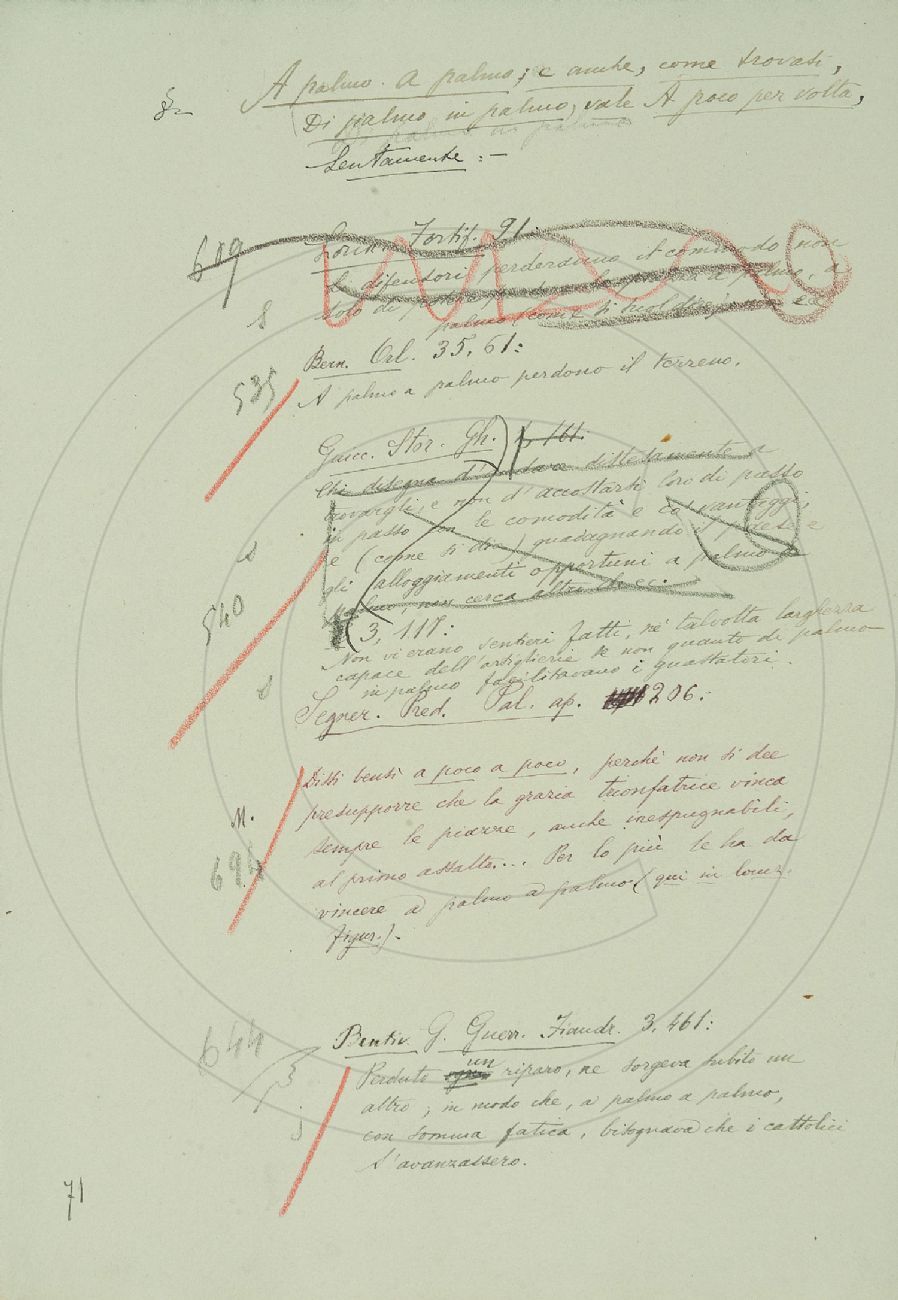 § A palmo a palmo; e anche, come trovasi,
Di palmo in palmo, vale A poco per volta,
Di palmo in palmo
Lentamente: –
609 Lorin. Fortif. 91:
i difensori perderanno il commodo non
solo di
palmo (come si suol dire)
Bern. Orl. 35, 61:
535 A palmo a palmo perdono il terreno.
Guicc. Stor. Gh.) p 161:
Chi disegna d'andare distesamente a
trovargli, e non d'accostarsi loro di passo
in passo con le comodità e co' vantaggi,
e (come si dice) guadagnando il paese e
gli alloggiamenti opportuni a palmo a
palmo, non cerca altro che ec.
540 (3, 117:
Non vi erano sentieri fatti, nè talvolta larghezza
capace dell'artiglierie se non quanto di palmo
in palmo facilitavano i guastatori.
Segner. Pred. Pal. ap. 206:
Dissi bensì a poco a poco, perchè non si dee
presupporre che la grazia trionfatrice vinca
M. sempre le piazze, anche inespugnabili,
694 al primo assalto... Per lo più le ha da
vincere a palmo a palmo (qui in locuz.
figur.).
644 Bentiv. G. Guerr. Fiandr. 3, 461:
Perduto un riparo, ne sorgeva subito un
altro; in modo che, a palmo a palmo,
con somma fatica, bisognava che i cattolici
s'avanzassero.
71